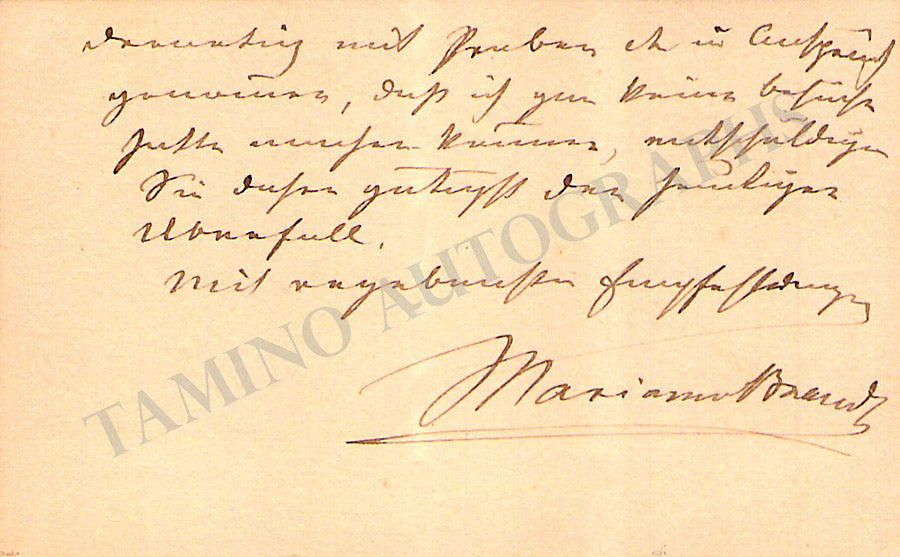 derartig mit Proben etc in Anspruch
genommen, daß ich gar keine Besuche
hätte machen können, entschuldigen
Sie daher gütigst den heutigen
Überfall.
Mit ergebensten Empfehlungen
Marianne Brandt
TAMINO AUTOGRAPHS